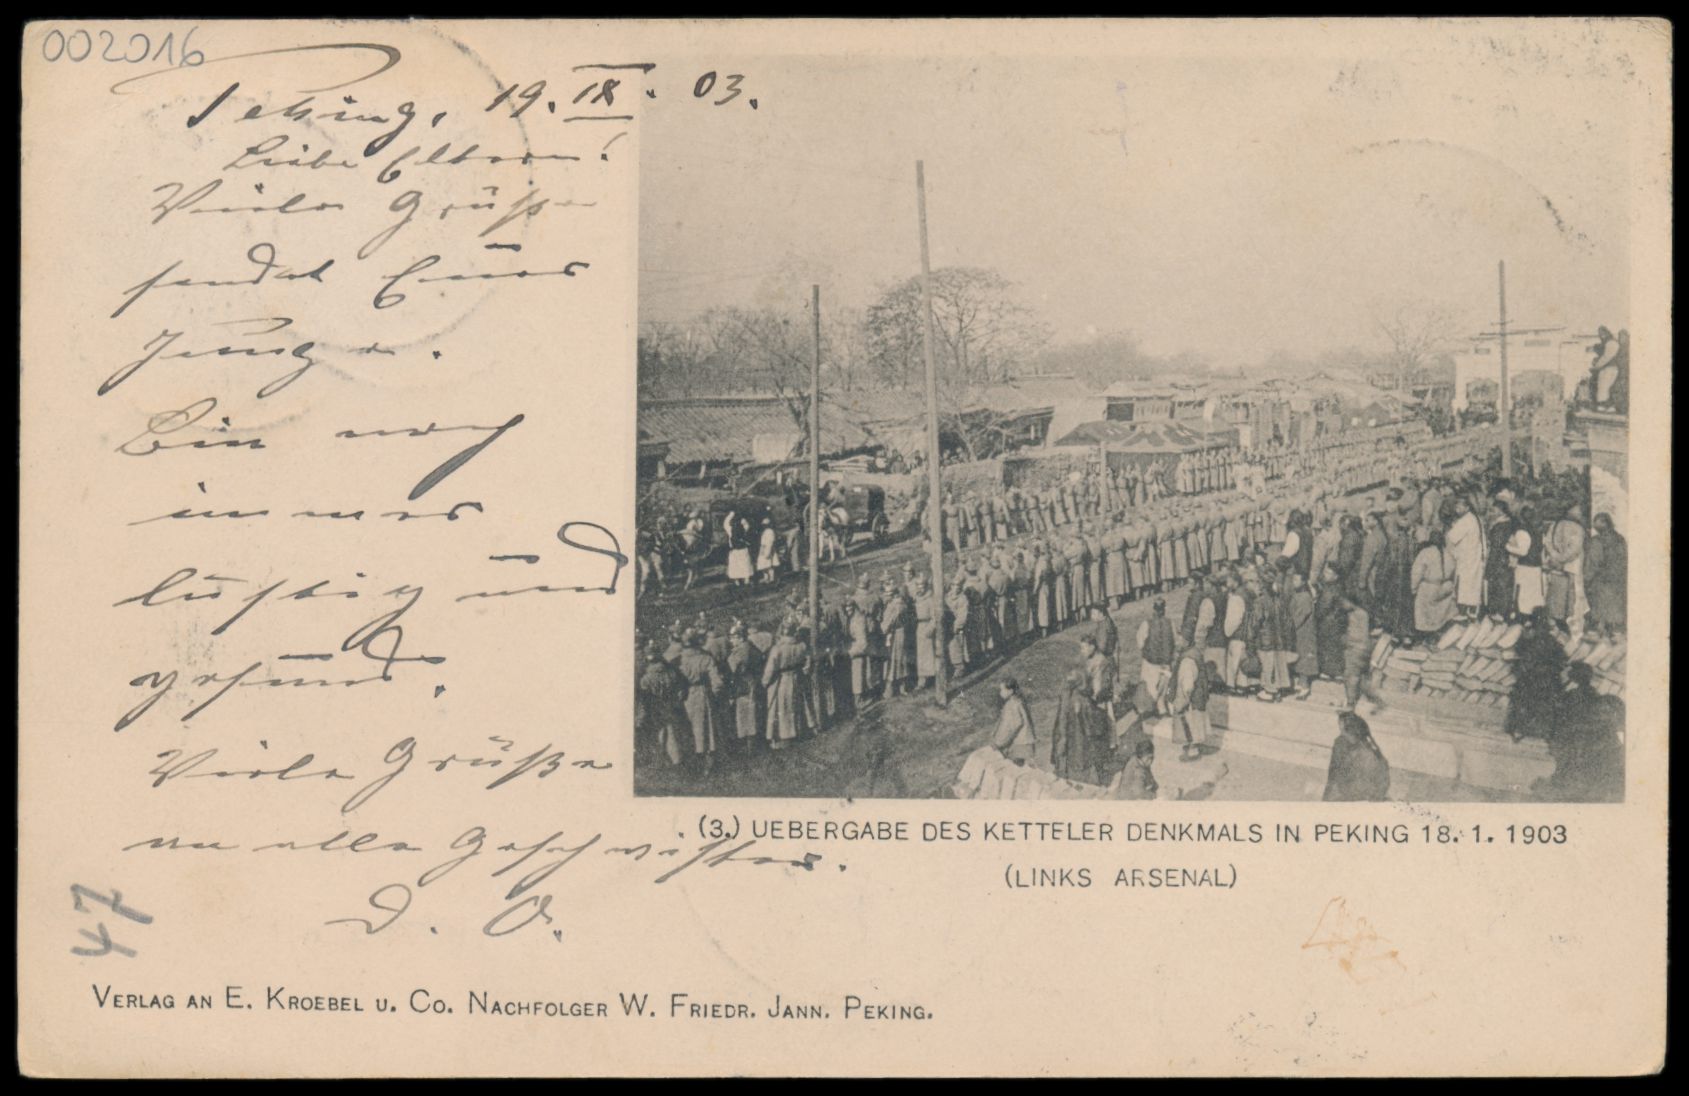 002016
Peking, 19. IX. 03.
Liebe Eltern!
Viele Grüße
sendet Euer
Junge.
Bin noch
immer
lustig und
gesund.
Viele Grüße
an alle Geschwister.
D. O.
47
(3.) UEBERGABE DES KETTELER DENKMALS IN PEKING 18. 1. 1903
(LINKS ARSENAL)
VERLAG AN E. KROEBEL U. CO. NACHFOLGER W. FRIEDR. JANN. PEKING.